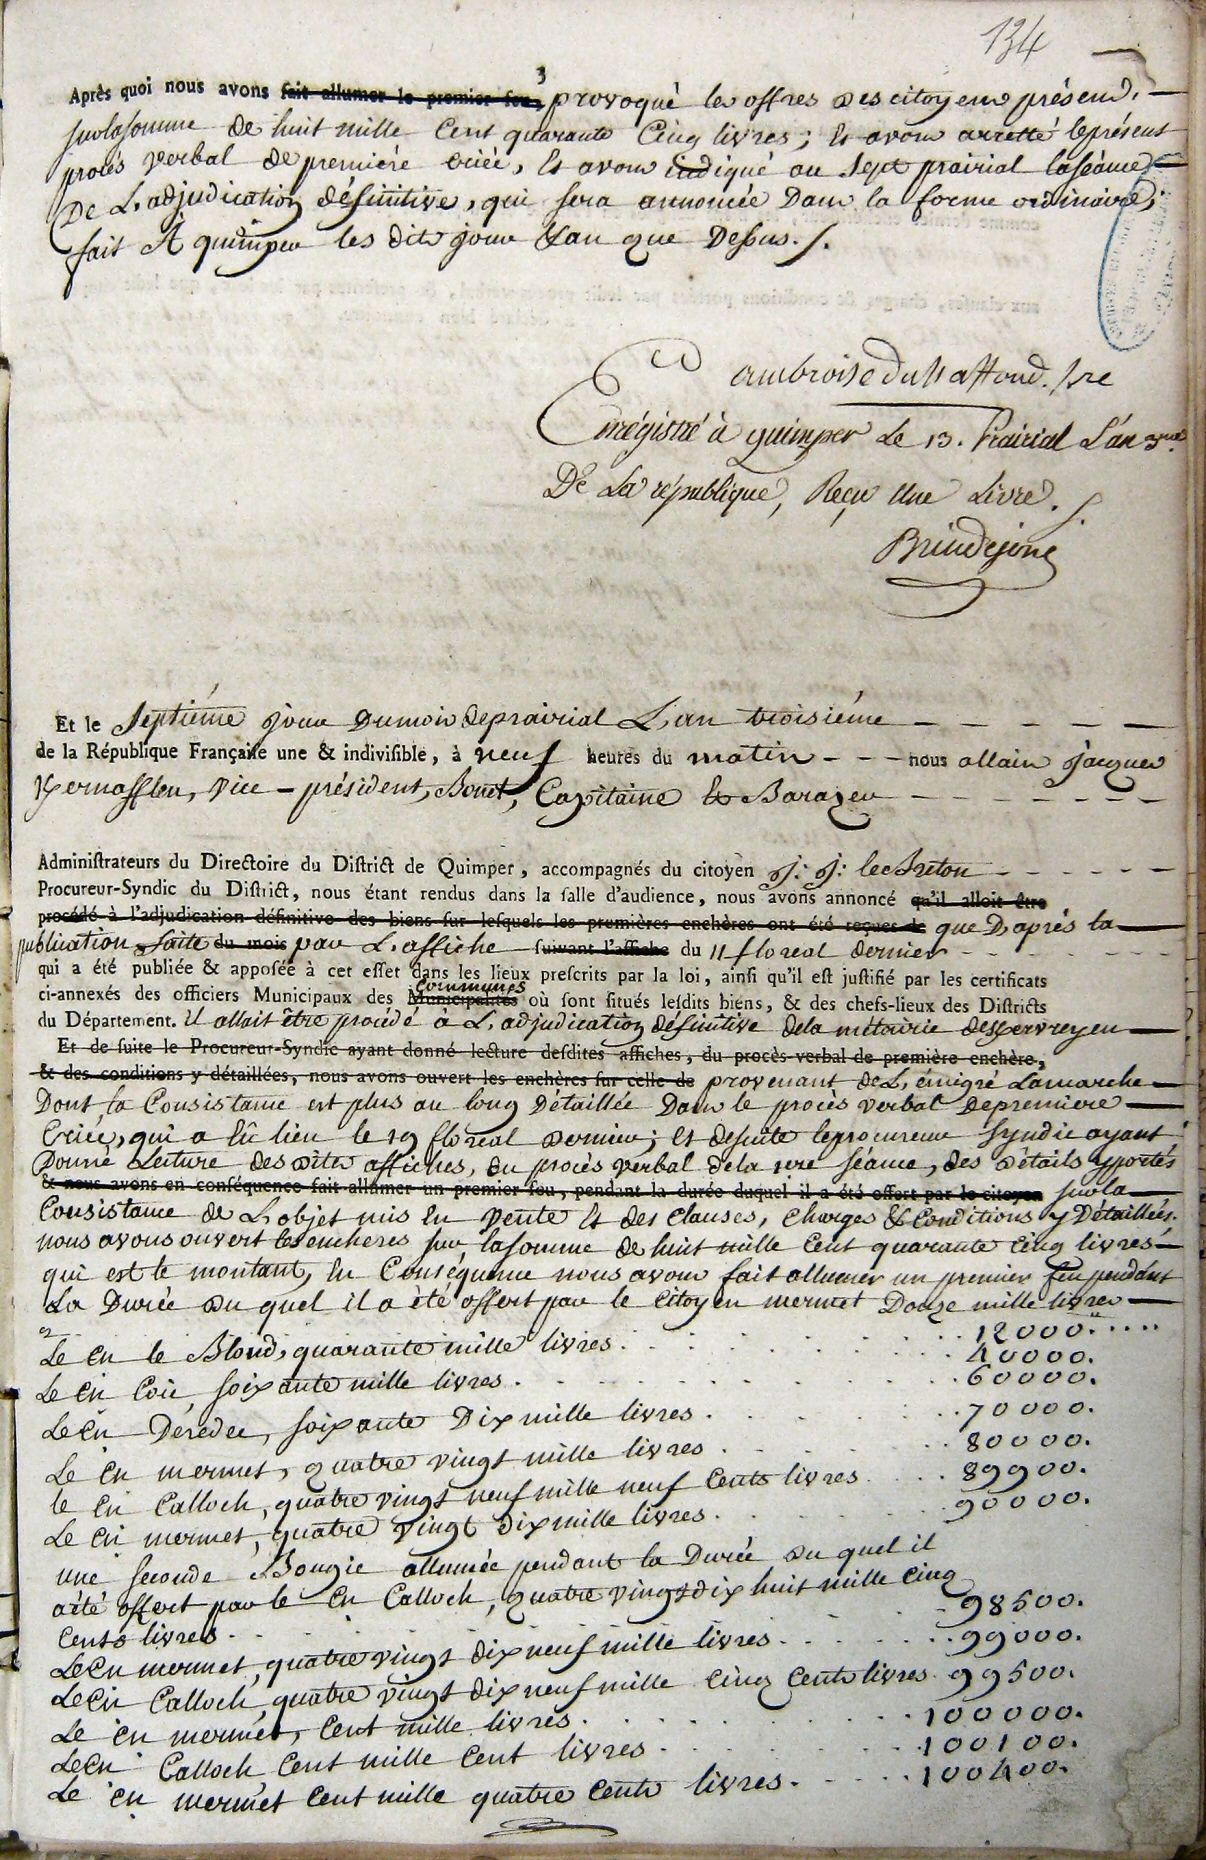 134
3
Après quoi nous avons fait allumer le premier feu, provoqué les offres des citoyens présens,
sur la somme de huit mille Cent quarante Cinq livres; Et avons arretté le présent
procès verbal de première criée, Et avons indiqué au Sept prairial la séance
De L'adjudication définitive, qui sera annoncée Dans la forme ordinaire,
fait A quimper les dits jour & an que Dessus. /.
ambroise du
Enrégistré à quimper Le 13. Prairial L'an 3me
De La république, Reçu Une Livre. /.
Brindejonc
Et le Septième jour Du mois de prairial L'an troisième
de la République Française une & indivisible, à neuf heures du matin - - - nous allain Jacques
Kernafflen, Vice-président, Bonet, Capitaine Et Barazer
Administrateurs du Directoire du District de Quimper, accompagnés du citoyen J: J: le Breton
Procureur-Syndic du District, nous étant rendus dans la salle d'audience, nous avons annoncé qu'il alloit être
procédé à l'adjudication définitive des biens sur lesquels les premières enchères ont été reçues le que D'après la
publication faite du mois par L'affiche suivant l'affiche du 11 floreal dernier
qui a été publiée & apposée à cet effet dans les lieux prescrits par la loi, ainsi qu'il est justifié par les certificats
communes
ci-annexés des officiers Municipaux des Municipalités où sont situés lesdits biens, & des chefs-lieux des Districts
du Département. Il allait être procédé à L'adjudication définitive de la métairie de
Et de suite le Procureur-Syndic ayant donné lecture desdites affiches, du procès-verbal de première enchère,
& des conditions y détaillées, nous avons ouvert les enchères sur celle de provenant de L'émigré Lamarche
Dont la Consistance est plus au long Détaillée Dans le procès verbal de premiere
Criée, qui a Eû lieu le 19 floreal dernier; Et de suite le procureur Syndic ayant
Donné Lecture des dites affiches, du procès verbal de la 1ere séance, des détails y portés
& nous avons en conséquence fait allumer un premier feu, pendant la durée duquel il a été offert par le citoyen sur la
Consistance de L'objet mis En Vente Et des Clauses, Charges & Conditions y Détaillées.
nous avons ouvert les encheres sur la somme de huit mille Cent quarante Cinq livres
qui est le montant, En Conséquence nous avons fait allumer un premier feu pendant
La Durée du quel il a été offert par le Citoyen mermet Douze mille livres
12000.
Le Cn le Blond, quarante mille livres. 40000.
Le Cn Coïc, soixante mille livres. 60000.
Le Cn Déredec, soixante Dix mille livres. 70000.
Le Cn mermet, quatre vingt mille livres. 80000.
le Cn Calloch, quatre vingt neuf mille neuf Cents livres 89900.
Le Cn mermet, quatre vingt dix mille livres. 90000.
une seconde Bougie allumée pendant la Durée du quel il
a été offert par le Cn Calloch, quatre vingt dix huit mille cinq
Cents livres. 98500.
Le Cn mermet, quatre vingt dix neuf mille livres. 99000.
Le Cn Calloch, quatre vingt dix neuf mille cinq Cents livres 99500.
Le Cn mermet, Cent mille livres. 100000.
Le Cn Calloch Cent mille Cent livres. 100100.
Le Cn mermet Cent mille quatre Cents livres. 100400.